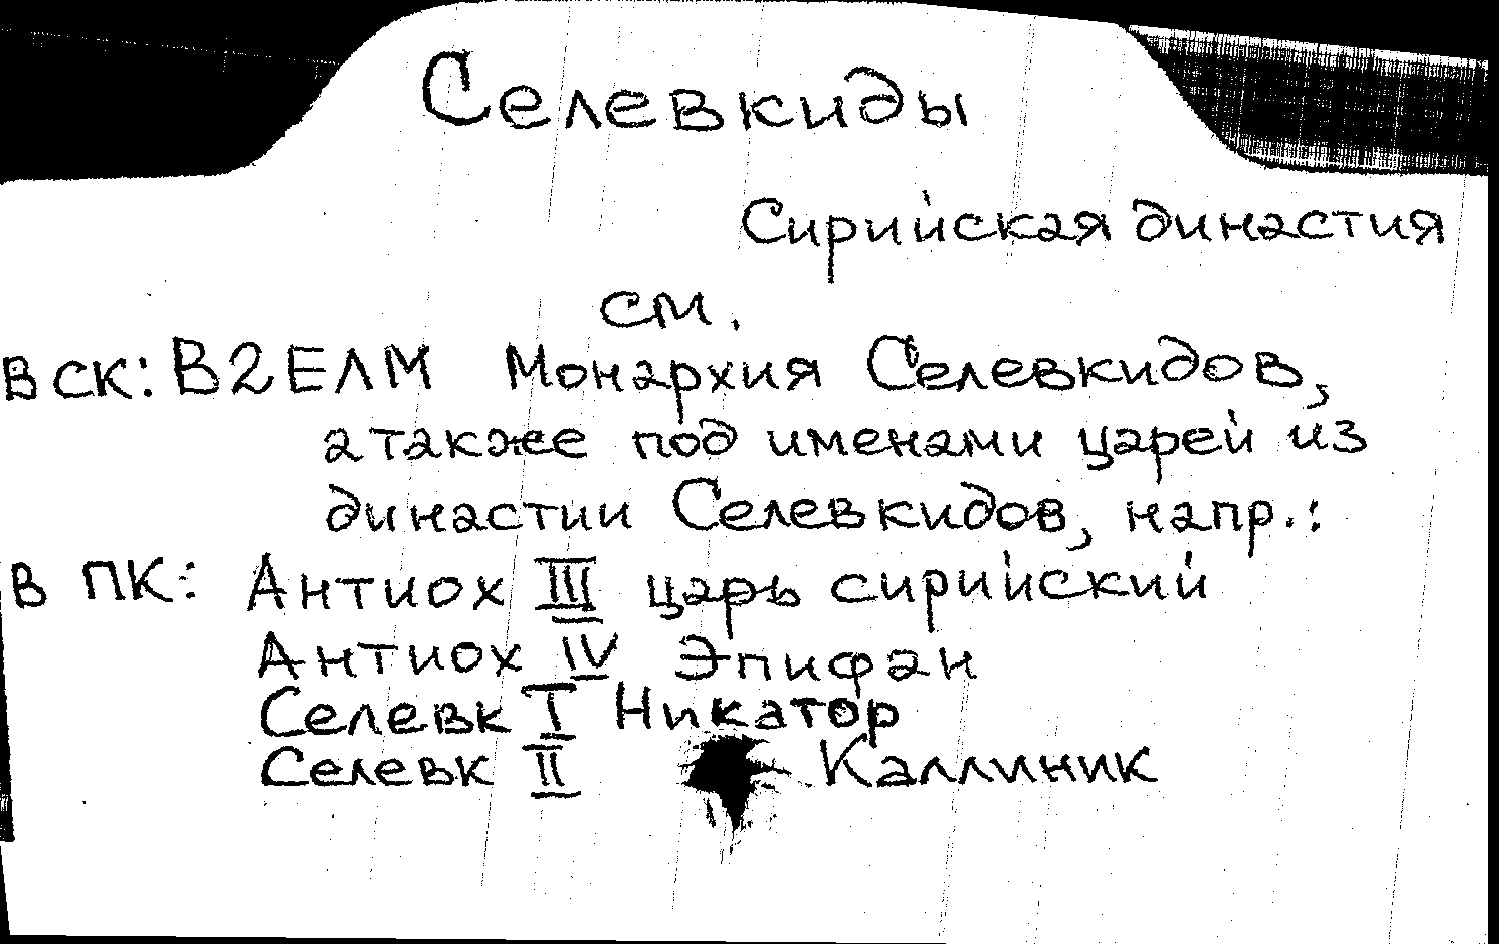 Селевкиды
Сирийская династия
см.
в СК: В2ЕЛМ Монархия Селевкидов,
а также под именами царей из
династии Селевкидов, напр.:
в ПК: Антиох III царь сирийский
Антиох IV Эпифан
Селевк I Никатор
Селевк II Каллиник